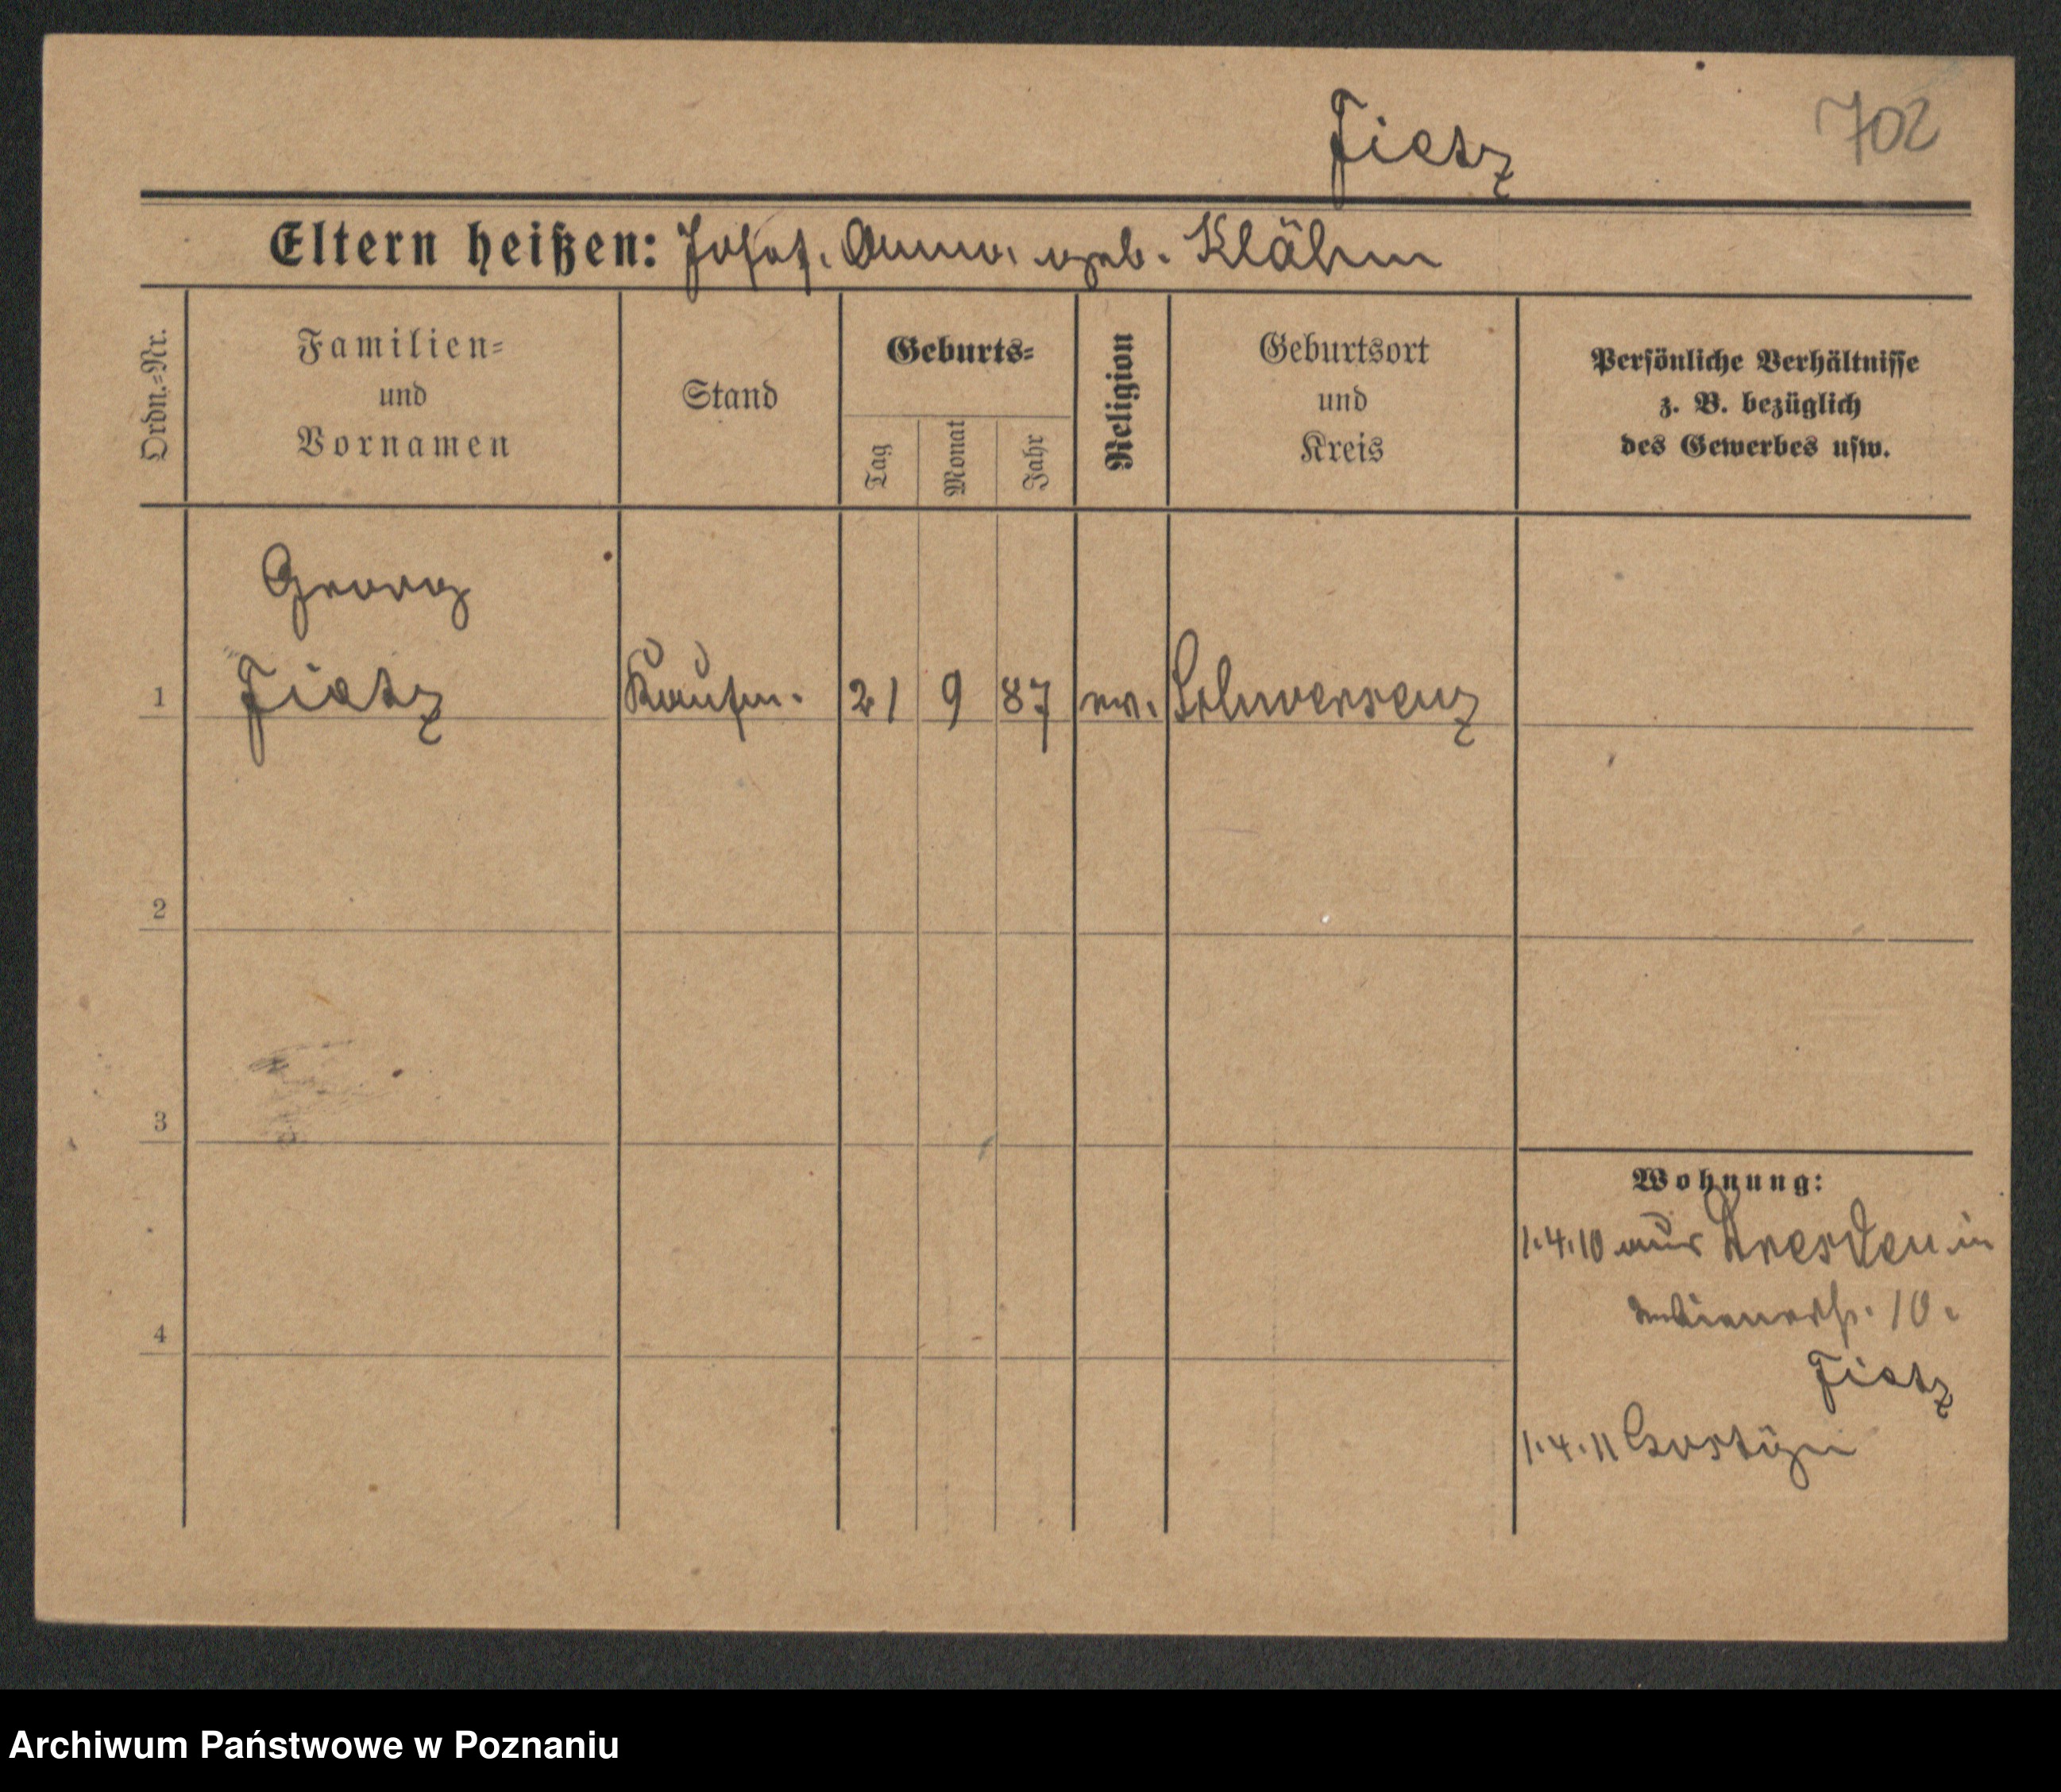 702
Fietz
Eltern heißen: Josef. Anna. geb. Klähm
Ordn.=Nr.
Familien=
und
Vornamen
Stand
Geburts=
Tag
Monat
Jahr
Religion
Geburtsort
und
Kreis
Persönliche Verhältnisse
z. B. bezüglich
des Gewerbes usw.
Georg
1 Fietz Kaufm. 21 9 87 Schwersenz
2
3
Wohnung:
1.4.10 aus Dresden in
10.
4
Fietz
1.4.11 Gostyn
Archiwum Państwowe w Poznaniu